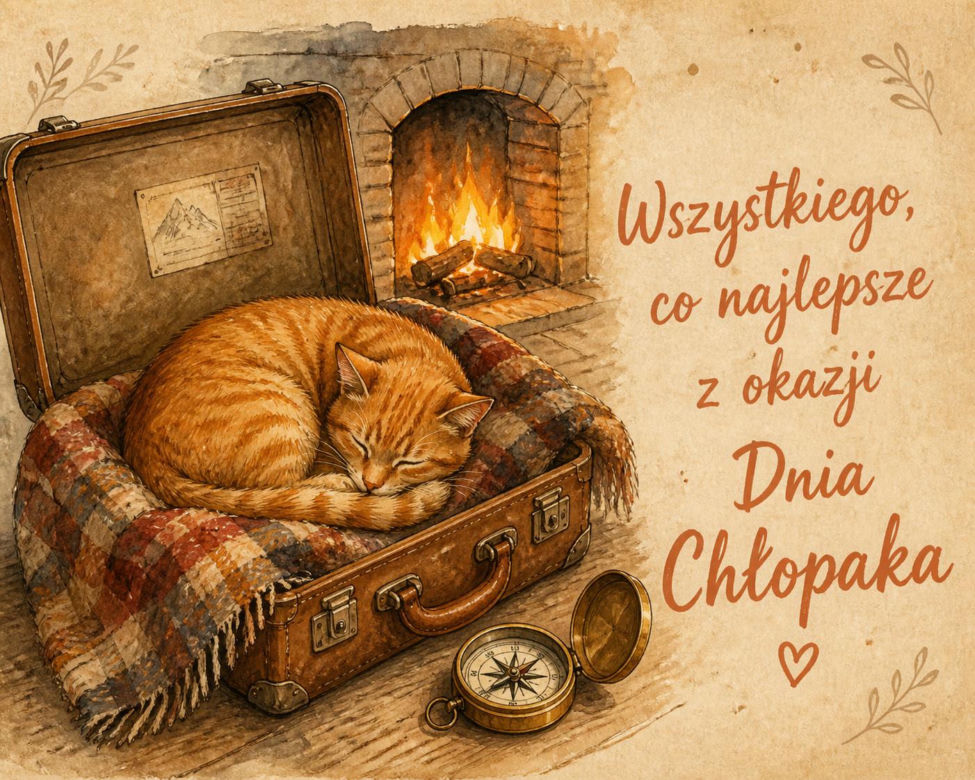 Wszystkiego,
co najlepsze
z okazji
Dnia
Chłopaka